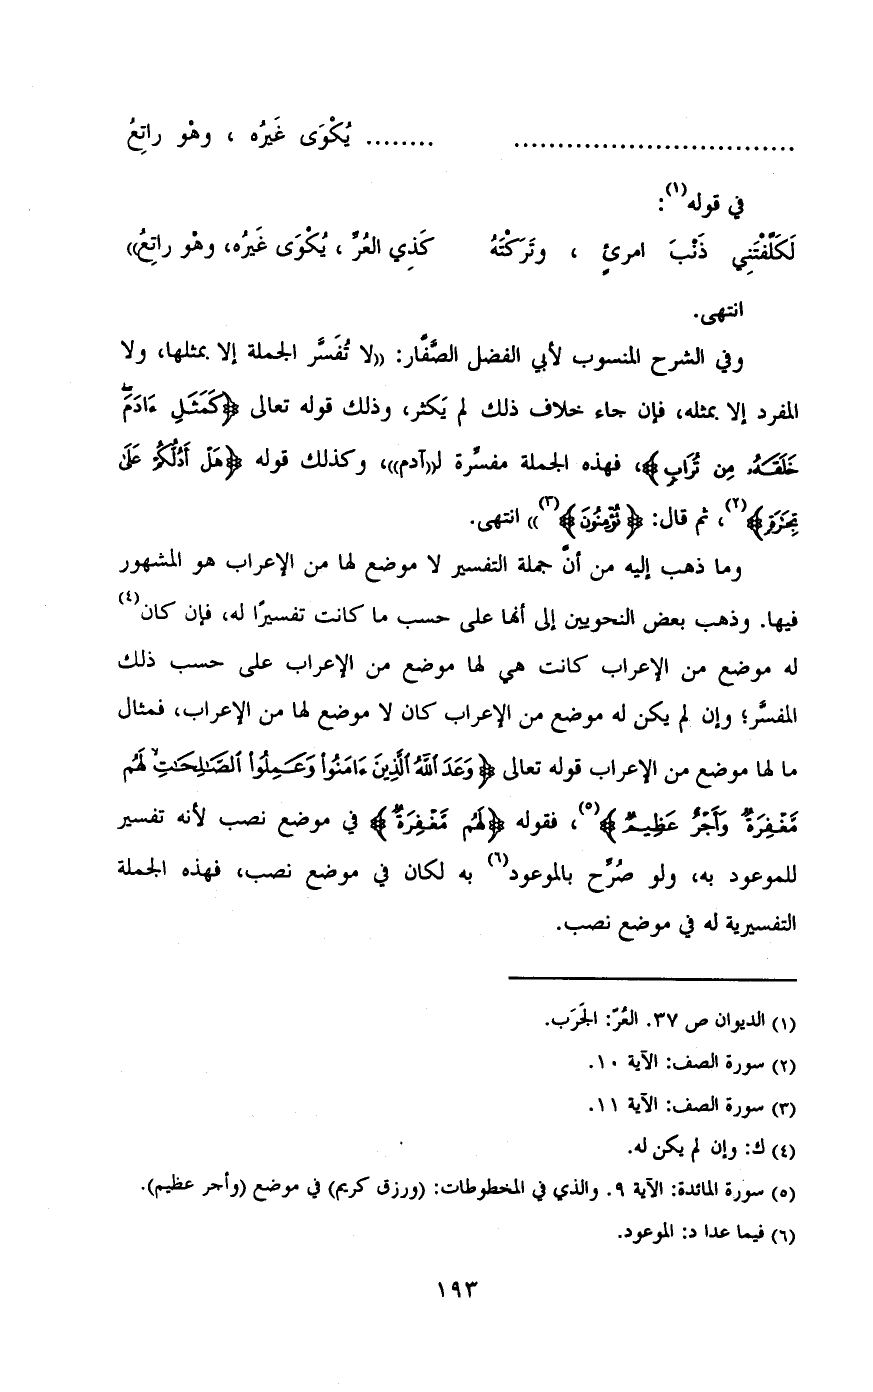 ............................... ........ يُكْوَى غَيرُه ، وهْو راتِعُ
في قوله(١):
لَكَلَّفْتَنِي ذَنْبَ امرئٍ ، وتَرَكْتَهُ كَذِي العُرِّ ، يُكْوَى غَيرُه، وهْو راتِعُ))
انتهى.
وفي الشرح المنسوب لأبي الفضل الصَّفَّار: ((لا تُفَسَّر الجملة إلا بمثلها، ولا
المفرد إلا بمثله، فإن جاء خلاف ذلك لم يَكثر، وذلك قوله تعالى ﴿كَمَثَلِ ءَادَمَۖ
خَلَقَهُۥ مِن تُرَابٍ﴾، فهذه الجملة مفسِّرة لـ((آدم))، وكذلك قوله ﴿هَلْ أَدُلُّكُمْ عَلَىٰ
تِجَٰرَةٍ﴾(٢)، ثم قال: ﴿تُؤْمِنُونَ﴾(٣))) انتهى.
وما ذهب إليه من أنَّ جملة التفسير لا موضع لها من الإعراب هو المشهور
فيها. وذهب بعض النحويين إلى أنها على حسب ما كانت تفسيرًا له، فإن كان(٤)
له موضع من الإعراب كانت هي لها موضع من الإعراب على حسب ذلك
المفسَّر؛ وإن لم يكن له موضع من الإعراب كان لا موضع لها من الإعراب، فمثال
ما لها موضع من الإعراب قوله تعالى ﴿وَعَدَ ٱللَّهُ ٱلَّذِينَ ءَامَنُوا۟ وَعَمِلُوا۟ ٱلصَّـٰلِحَـٰتِۙ لَهُم
مَّغْفِرَةٌ وَأَجْرٌ عَظِيمٌ﴾(٥)، فقوله ﴿لَهُم مَّغْفِرَةٌ﴾ في موضع نصب لأنه تفسير
للموعود به، ولو صُرِّح بالموعود(٦) به لكان في موضع نصب، فهذه الجملة
التفسيرية له في موضع نصب.
(١) الديوان ص ٣٧. العُرّ: الجَرَب.
(٢) سورة الصف: الآية ١٠.
(٣) سورة الصف: الآية ١١.
(٤) ك: وإن لم يكن له.
(٥) سورة المائدة: الآية ٩. والذي في المخطوطات: (ورزق كريم) في موضع (وأجر عظيم).
(٦) فيما عدا د: الموعود.
١٩٣